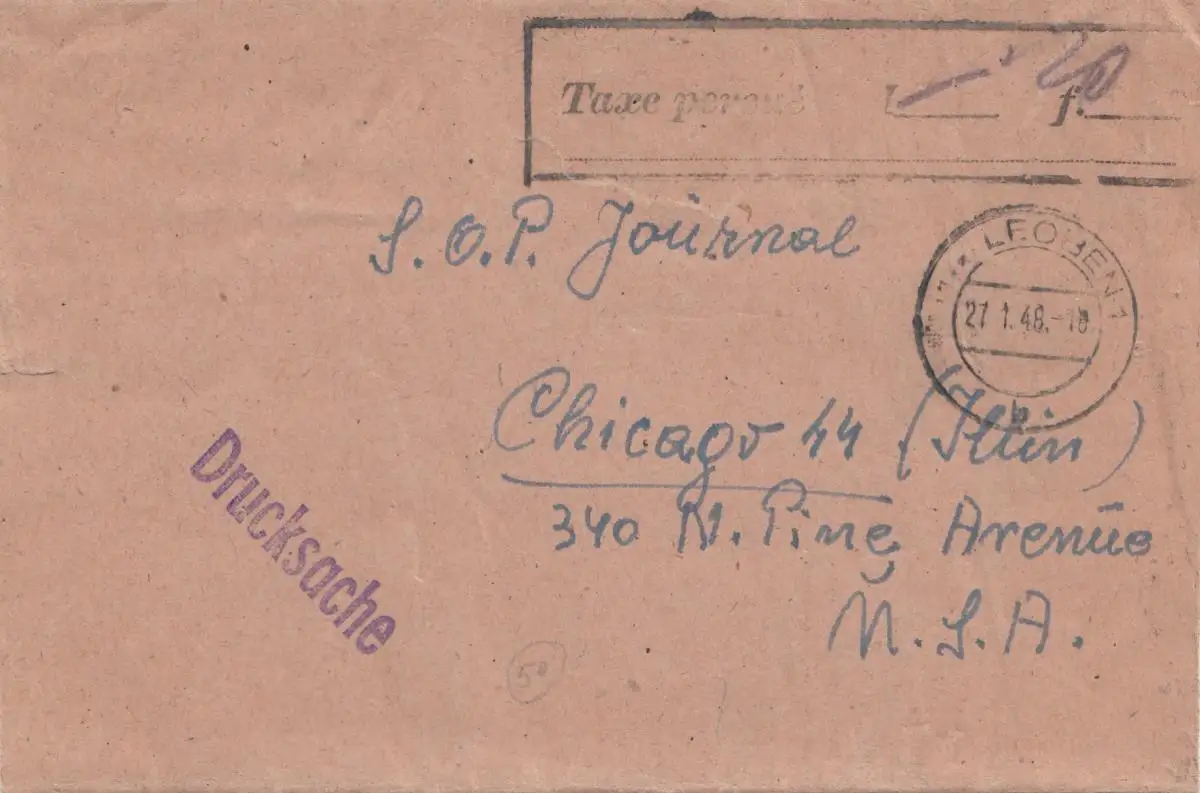 Taxe perçue f. 20
S. O. P. Joürnal
LEOBEN 1
27 1.48.-18
b
Chicago 44 (Illin)
340 N. Pine Avenüe
U. S. A.
Drucksache
50